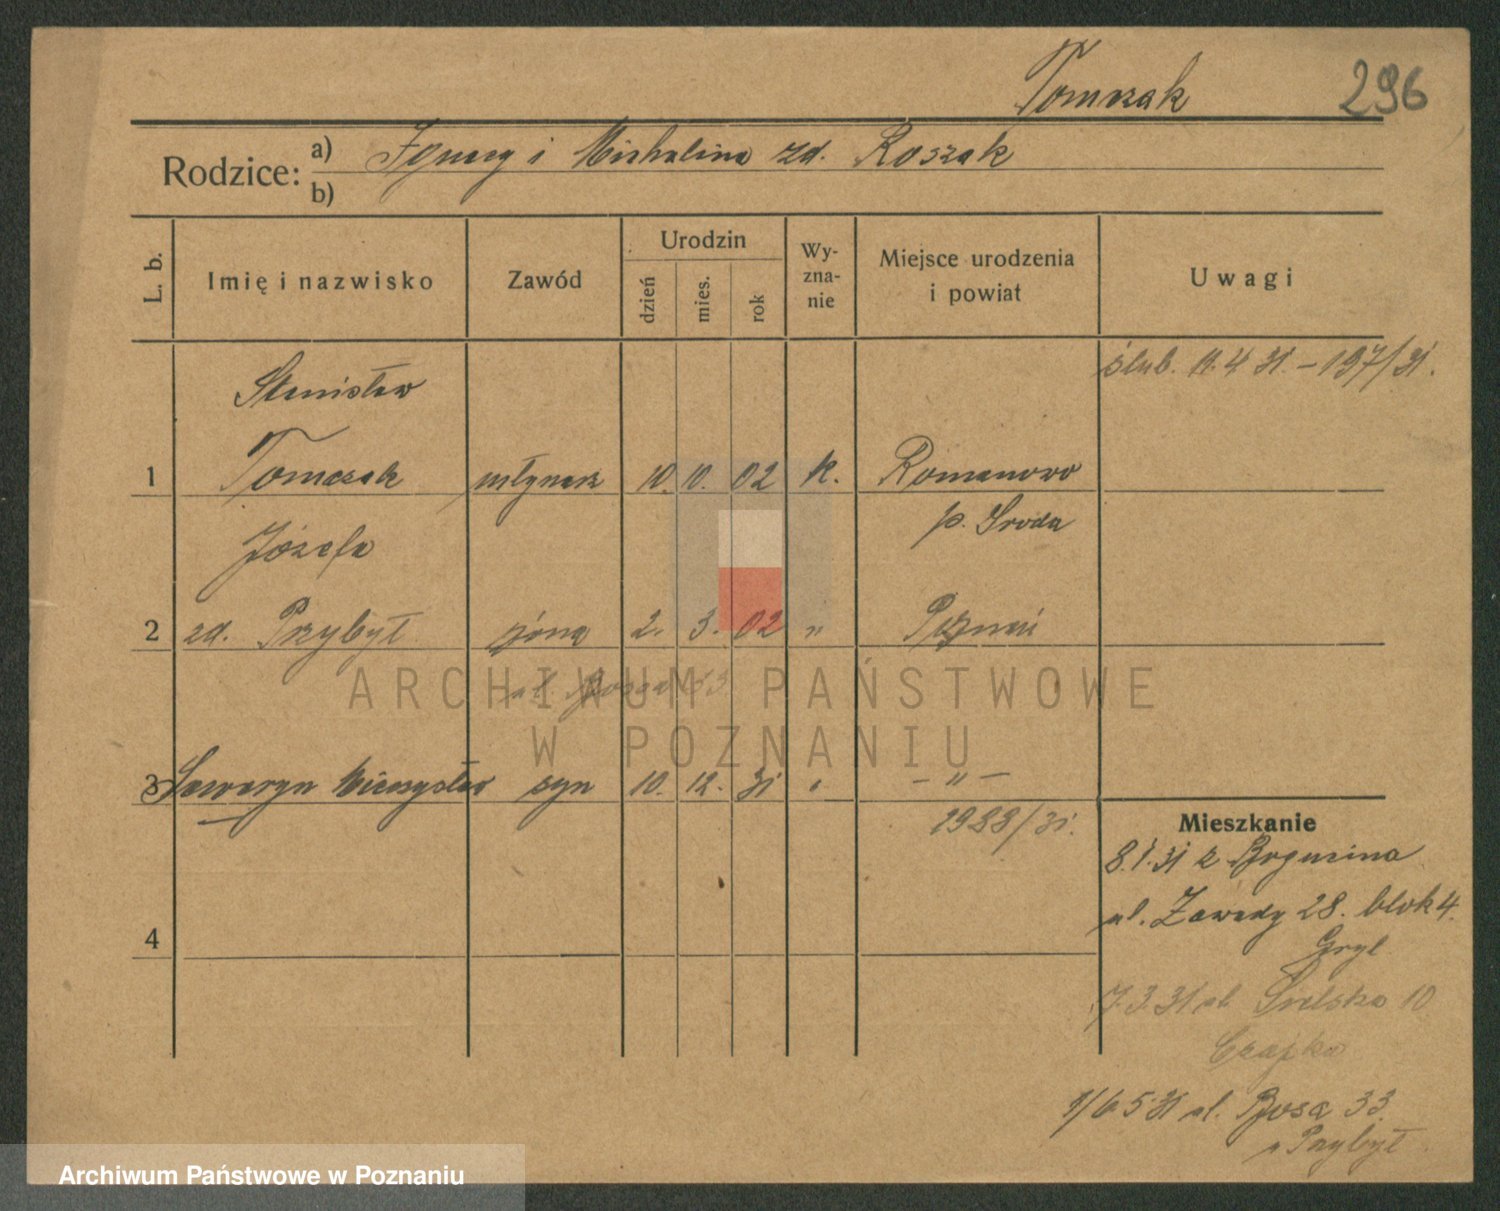 Tomczak
296
Rodzice: a) Ignacy i Michalina zd. Roszak
b)
L. b. Imię i nazwisko Zawód Urodzin dzień mies. rok Wy-zna-nie Miejsce urodzenia i powiat Uwagi
ślub. 11.4 31. – 197/31.
Stanisław
1 Tomczak młynarz 10. 10. 02 k. Romanowo
p. Środa
Józefa
2 zd. Przybył żona 2. 3. 02 „ Poznań
ul. Bosa 33
3 Seweryn Mieczysław syn 10. 12. 31 „ – „ –
1988/31.
Mieszkanie
8.1.31 z Bogucina
ul. Zawady 28. blok 4.
Gryl
4
7.3.31 ul. Sielska 10
Czajka
1/6 5 31 ul. Bosa 33.
Przybył
ARCHIWUM PAŃSTWOWE
W POZNANIU
Archiwum Państwowe w Poznaniu